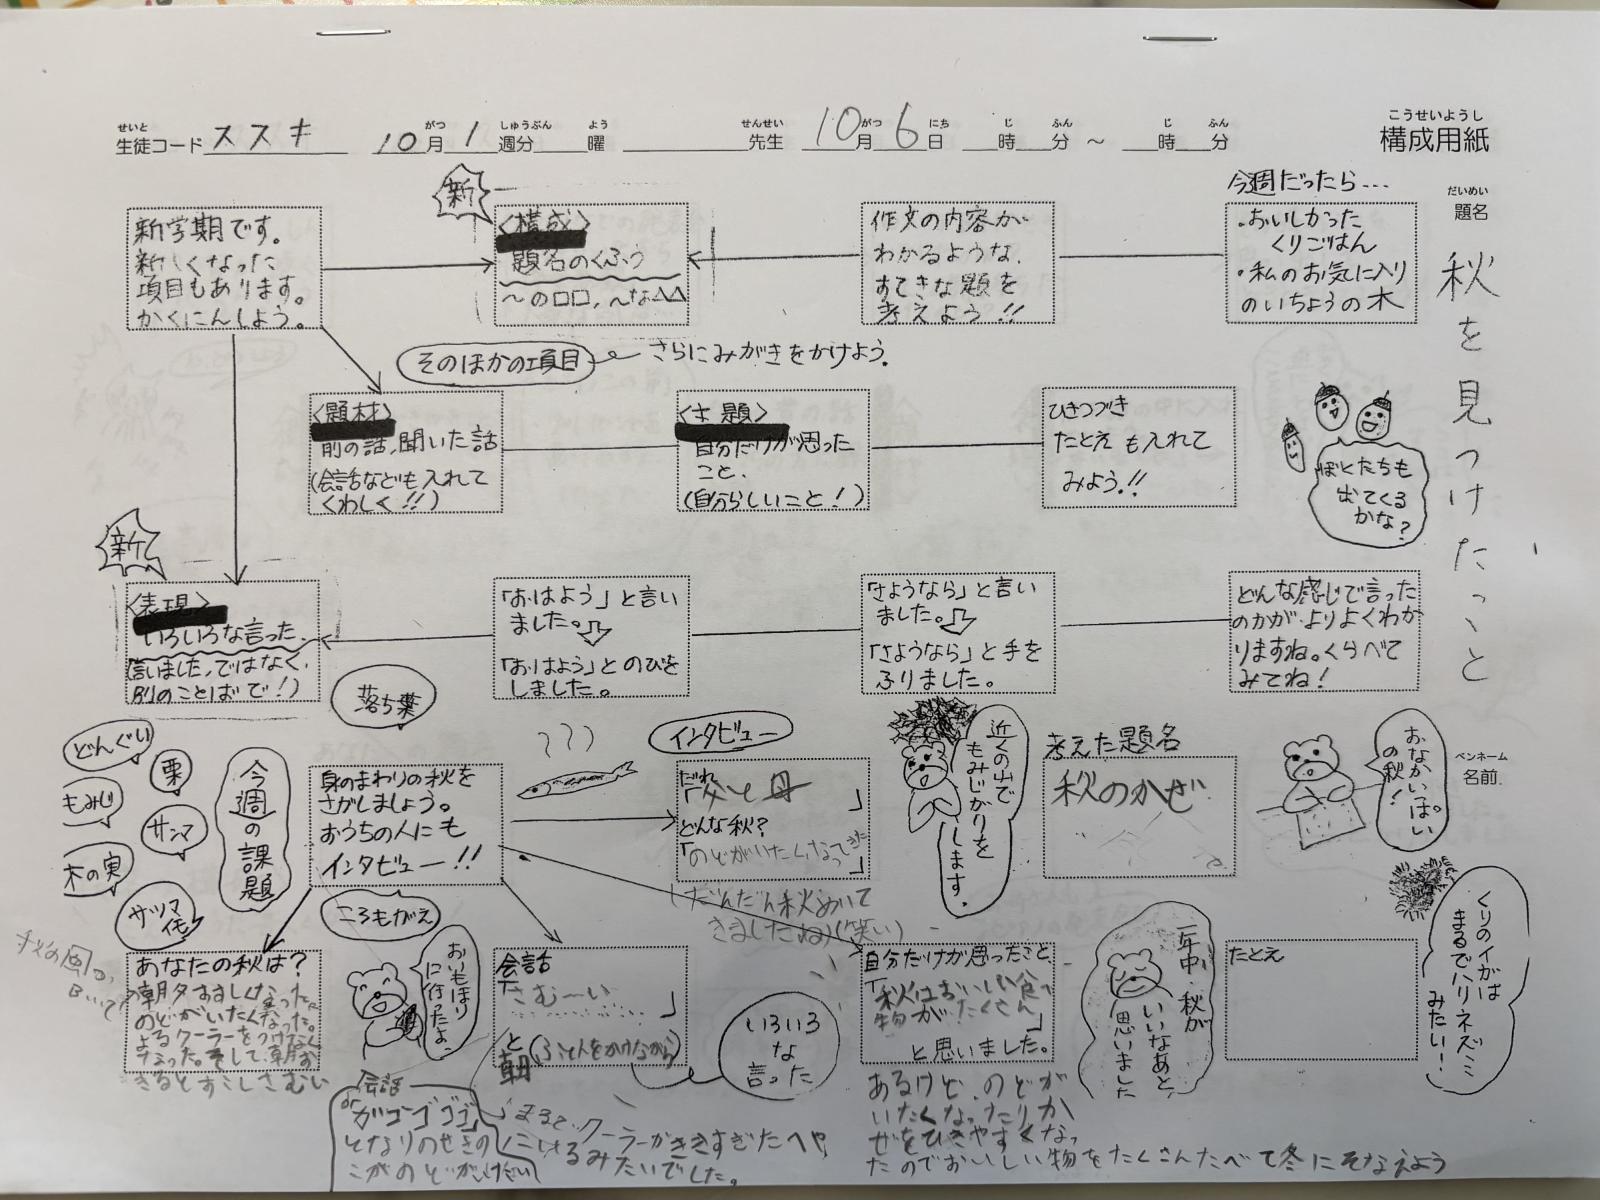 せいと
生徒コード ススキ
がつ しゅうぶん よう
10月 1週分 曜
せんせい
先生
がつ にち じ ふん じ ふん
10月 6日 時 分 ～ 時 分
こうせいようし
構成用紙
だいめい
題名
秋を見つけたこと
ペンネーム
名前
新学期です。
新しくなった
項目もあります。
かくにんしよう。
新
〈構成〉
題名のくふう
～の□□，～な△△
作文の内容が
わかるような、
すてきな題を
考えよう!!
今週だったら…
・おいしかった
くりごはん
・私のお気に入り
のいちょうの木
そのほかの項目
さらにみがきをかけよう。
〈題材〉
前の話、聞いた話
(会話なども入れて
くわしく!!)
〈主題〉
自分だけが思った
こと、
(自分らしいこと!)
ひきつづき
たとえも入れて
みよう!!
ぼくたちも
出てくる
かな?
新
〈表現〉
いろいろな言った、
(言いました、ではなく、
別のことばで!)
「おはよう」と言い
ました。
「おはよう」とのびを
しました。
「さようなら」と言い
ました。
「さようなら」と手を
ふりました。
どんな感じで言った
のかが、よりよくわか
りますね。くらべて
みてね!
落ち葉
どんぐり
栗
もみじ
サンマ
木の実
サツマ
イモ
今週の課題
身のまわりの秋を
さがしましょう。
おうちの人にも
インタビュー!!
インタビュー
だれ
「父と母」
どんな秋?
「のどがいたくなってきた」
(だんだん秋めいて
きましたね)(笑い)
近くの山で
もみじがりを
します。
考えた題名
秋のかぜ
おなかいっぱい
の秋!
くりのイガは
まるでハリネズミ
みたい!
ころもがえ
おいもほり
に行ったよ。
秋の風が
あなたの秋は?
朝夕すずしくなった。
のどがいたくなった。
よるクーラーをつけなく
なった。そして、朝お
きるとすこしさむい
会話
「さむーい」
と(ふとんをかけながら)
朝
いろいろ
な
言った
自分だけが思ったこと、
「秋はおいしい食べ
物がたくさん」
と思いました。
あるけど、のどが
いたくなったりか
ぜをひきやすくなっ
たのでおいしい物をたくさんたべて冬にそなえよう
一年中、秋が
いいなあと、
思いました
たとえ
会話
or
「ガゴーゴゴゴ」
となりのせきの
こがのどが
まるで、クーラーがききすぎたへや
にいるみたいでした。